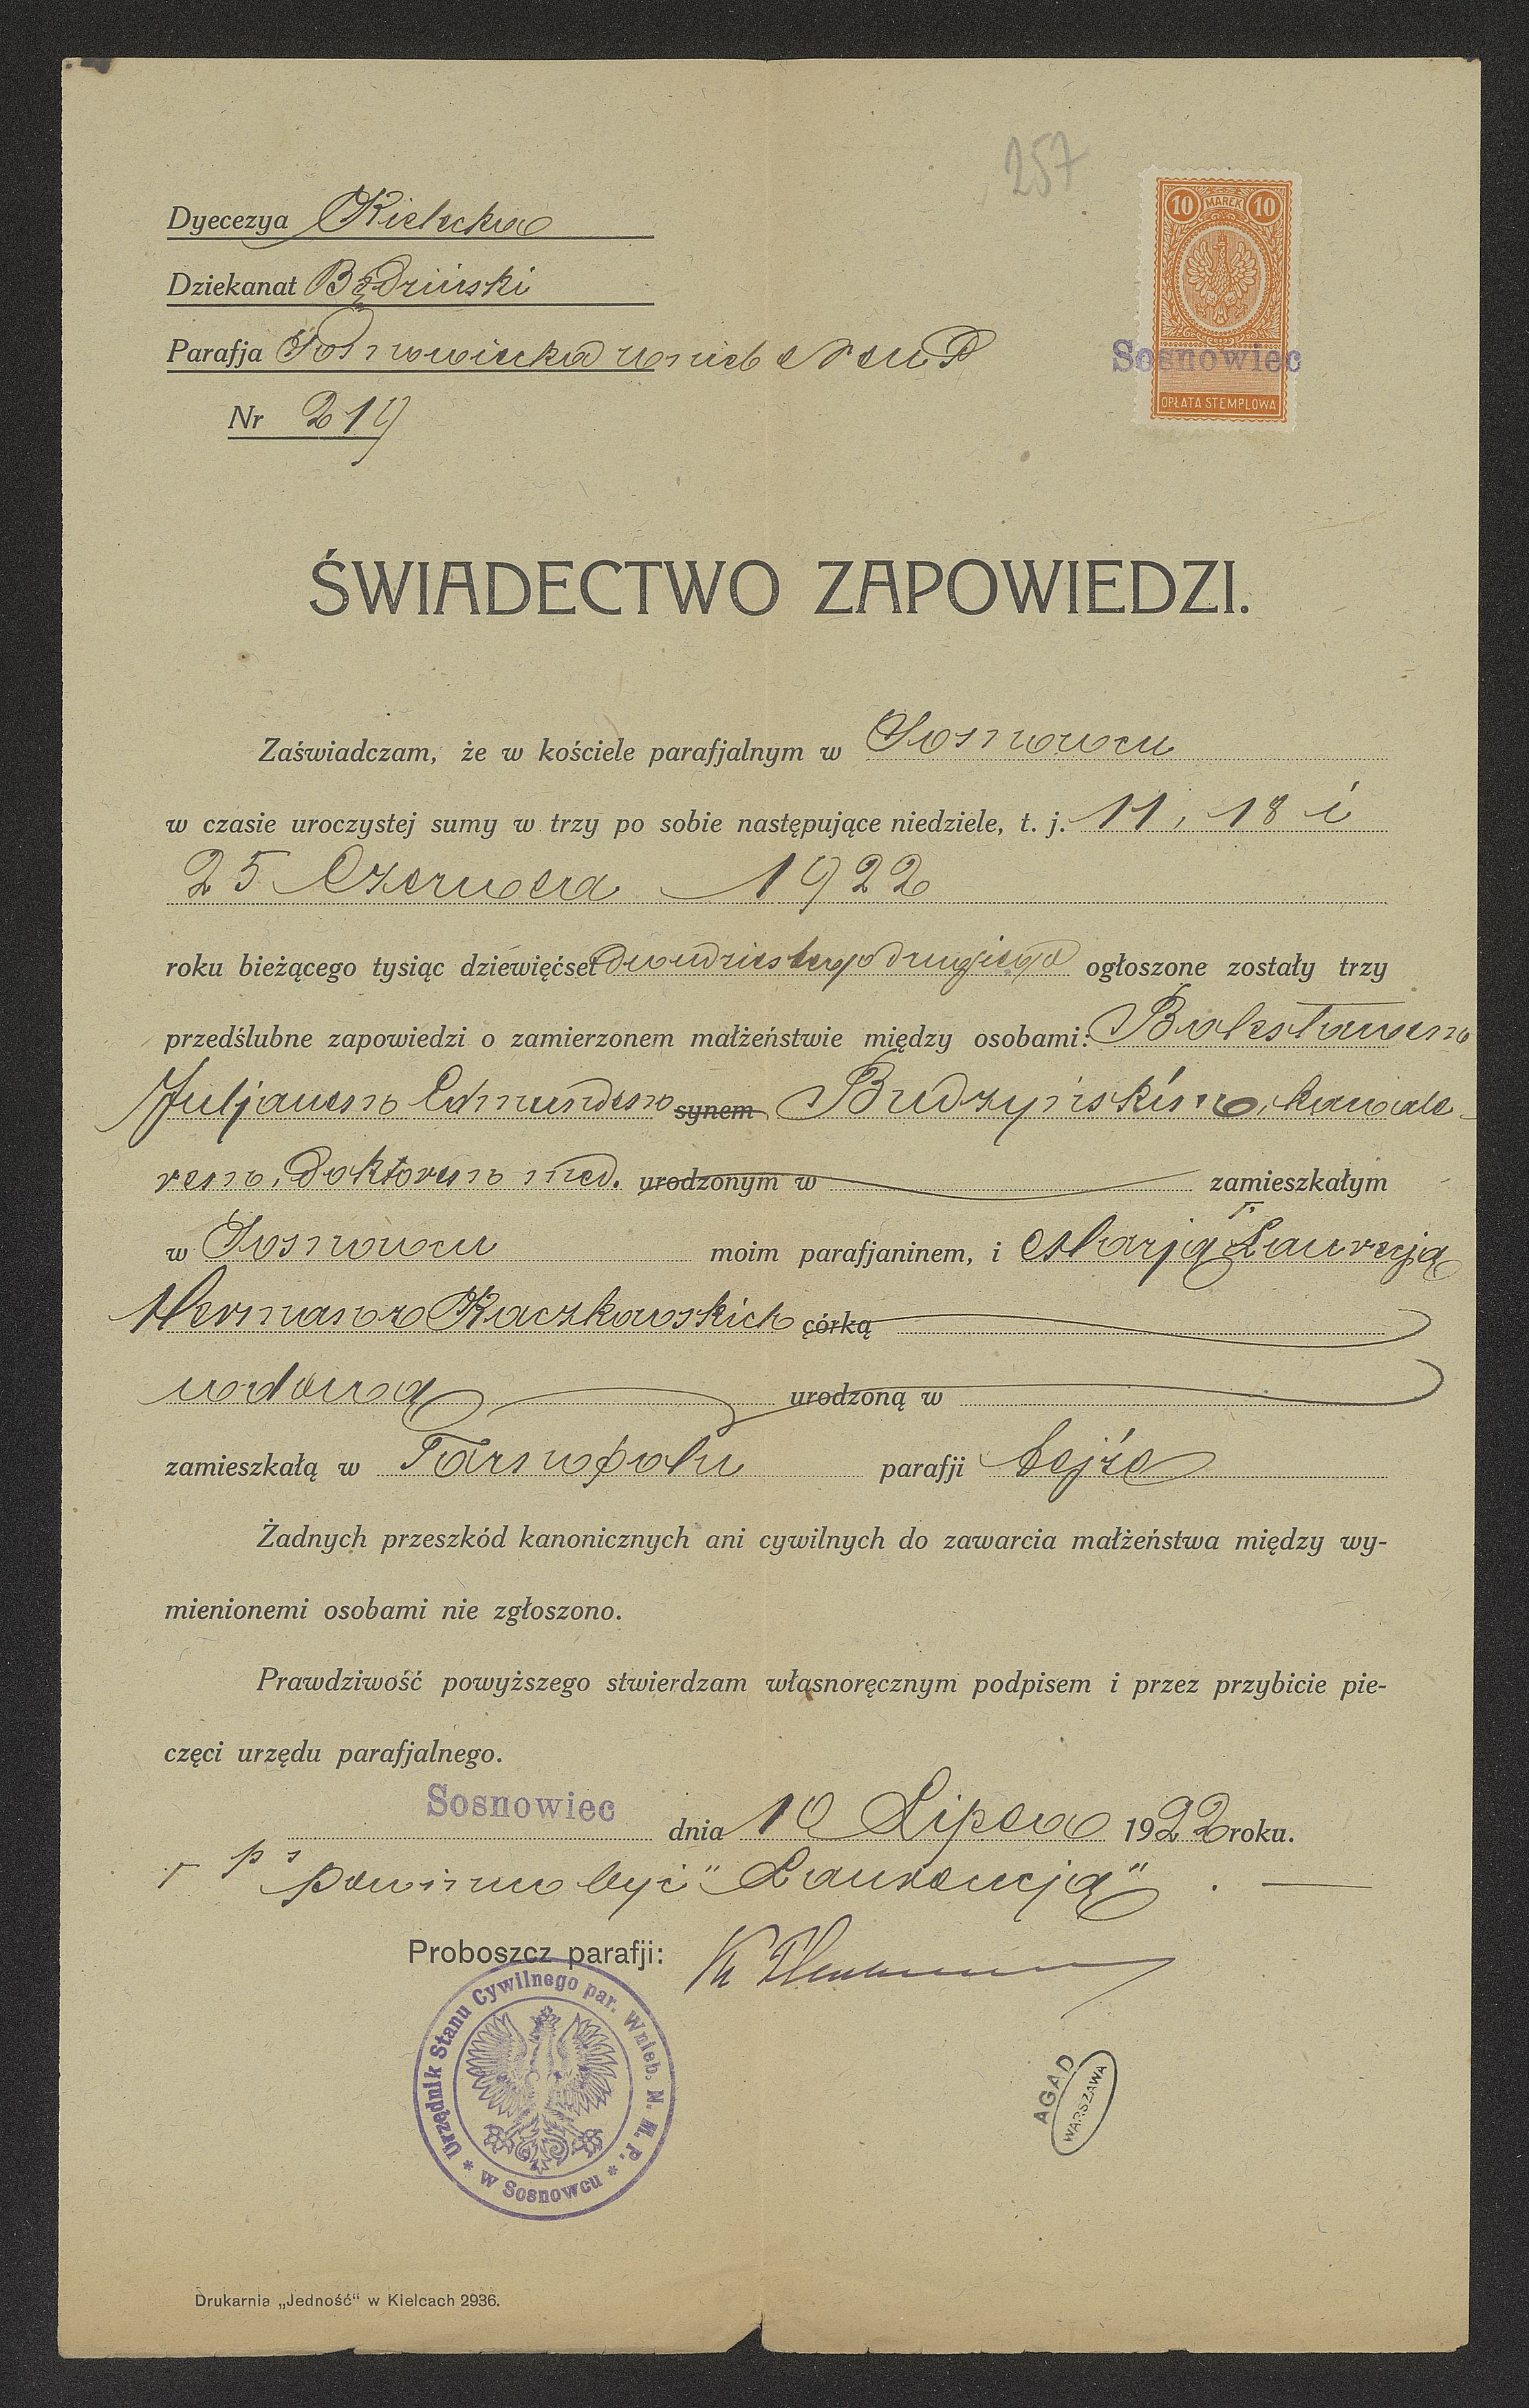 257
10 MAREK 10
Dyecezya Kielecka
Dziekanat Będziński
Parafja Sosnowiecka wnieb N M P
Sosnowiec
OPŁATA STEMPLOWA
Nr 219
ŚWIADECTWO ZAPOWIEDZI.
Zaświadczam, że w kościele parafjalnym w Sosnowcu
w czasie uroczystej sumy w trzy po sobie następujące niedziele, t. j. 11, 18 i
25 Czerwca 1922
roku bieżącego tysiąc dziewięćset dwudziestego drugiego ogłoszone zostały trzy
przedślubne zapowiedzi o zamierzonem małżeństwie między osobami: Bolesławem
Juljanem Edmundem synem Budzyńskim, kawale-
rem, Doktorem med. urodzonym w zamieszkałym
w Sosnowcu moim parafjaninem, i Marją Laurecją
Herman z Kaczkowskich córką
wdową urodzoną w
zamieszkałą w Tarnopolu parafji tejże
Żadnych przeszkód kanonicznych ani cywilnych do zawarcia małżeństwa między wy-
mienionemi osobami nie zgłoszono.
Prawdziwość powyższego stwierdzam własnoręcznym podpisem i przez przybicie pie-
częci urzędu parafjalnego.
Sosnowiec dnia 10 Lipca 1922 roku.
p s powinno być "Laurencją".
Proboszcz parafji:
Urzędnik Stanu Cywilnego par. Wnieb. N. M. P.
* w Sosnowcu *
AGAD
WARSZAWA
Drukarnia „Jedność“ w Kielcach 2936.